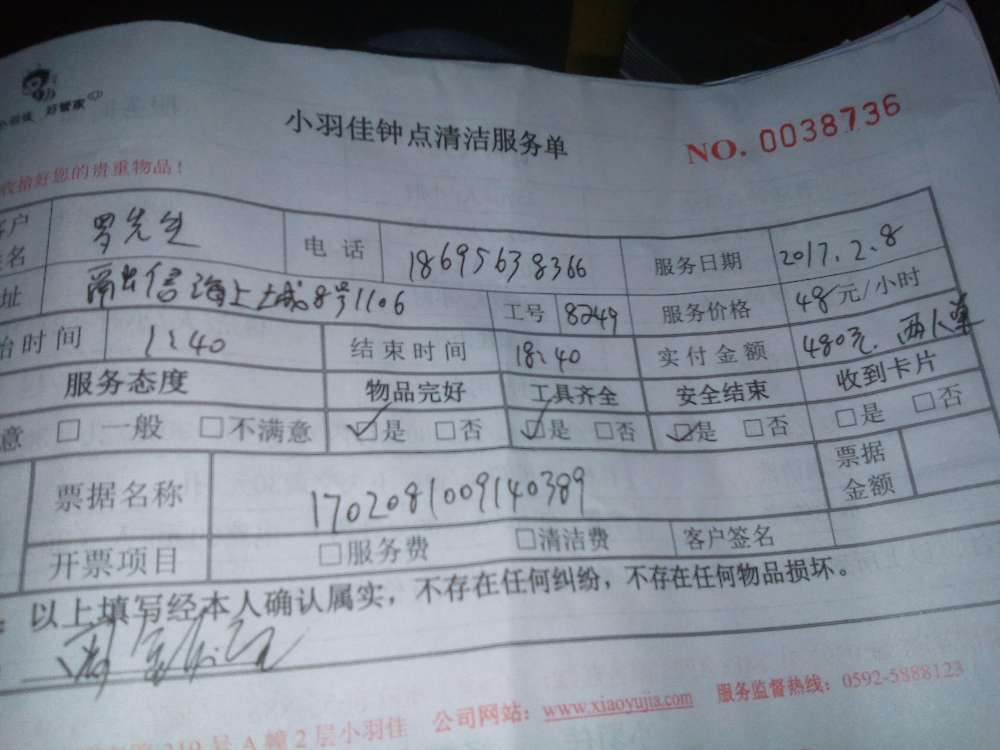 好管家
小羽佳钟点清洁服务单
NO. 0038736
收拾好您的贵重物品!
罗先生 电话 18695638366 服务日期 2017.2.8
址 海上城8号1106 工号 8249 服务价格 48元/小时
时间 1:40 结束时间 18:40 实付金额 480元.两人单
服务态度 物品完好 工具齐全 安全结束 收到卡片
意 □ 一般 □不满意 ☑是 □否 ☑是 □否 ☑是 □否 □是 □否
票据名称 1702081009140389 票据金额
开票项目 □服务费 □清洁费 客户签名
以上填写经本人确认属实，不存在任何纠纷，不存在任何物品损坏。
210号A幢2层小羽佳 公司网站：www.xiaoyujia.com 服务监督热线：0592-5888123